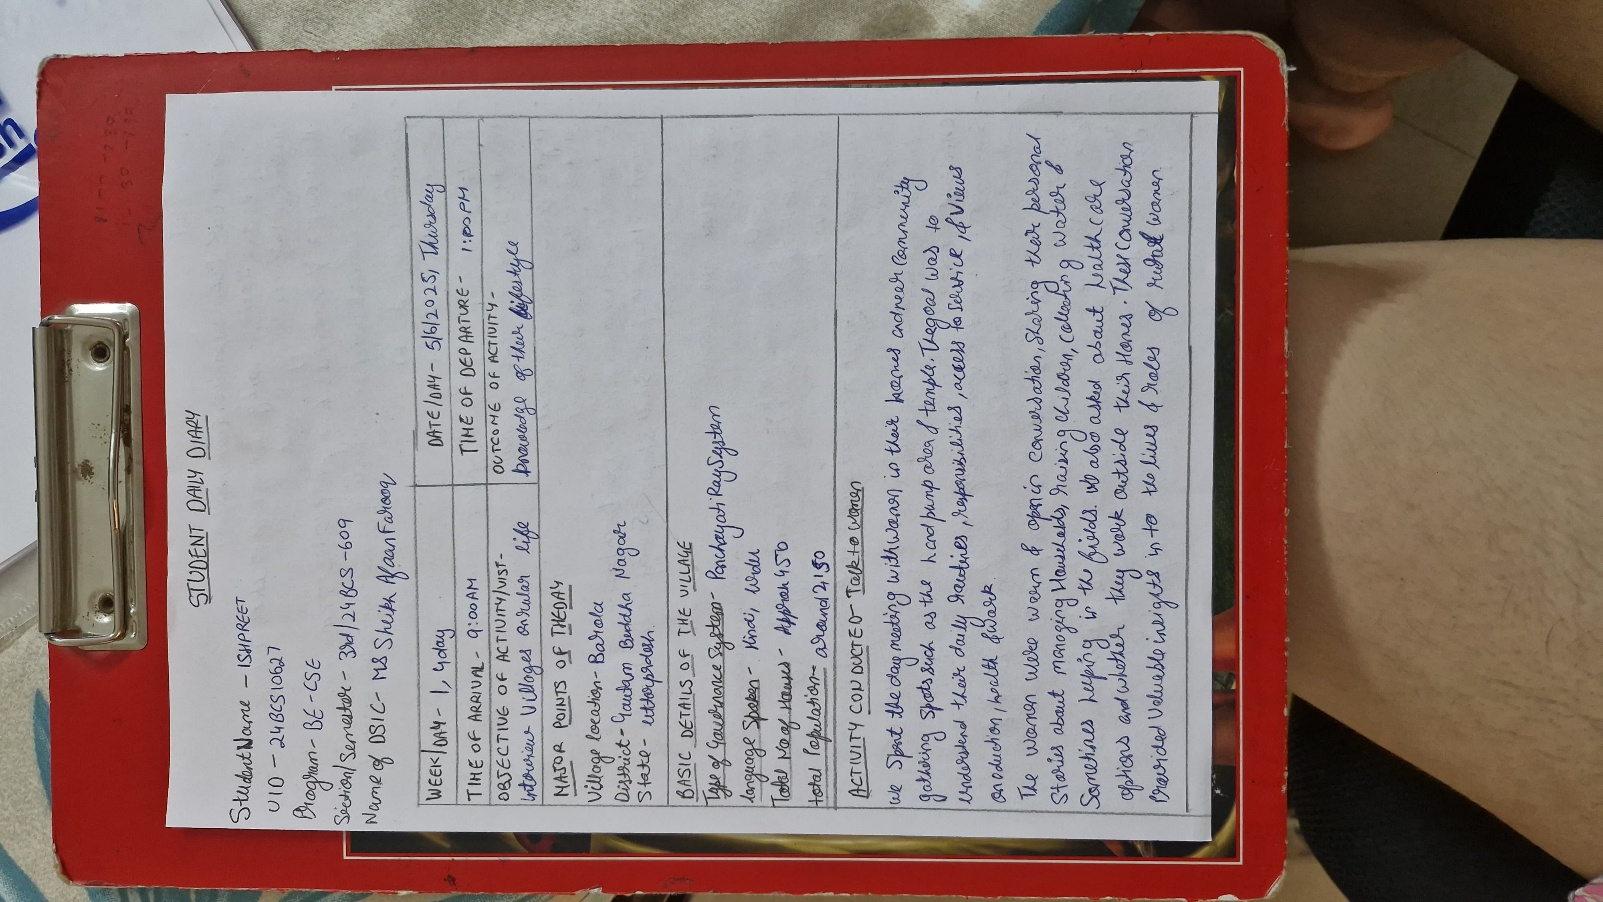 STUDENT DAILY DIARY
Student Name - ISHPREET
UID - 24BCS10627
Program - BE-CSE
Section/Semester - 3rd/24BCS-609
Name of DSIC - MS Sheikh Afaan Farooq
WEEK/DAY - 1, 4day
DATE/DAY - 5/6/2025, Thursday
TIME OF ARRIVAL - 9:00AM
TIME OF DEPARTURE - 1:00PM
OBJECTIVE OF ACTIVITY/VISIT-
interview Villages on rular life
OUTCOME OF ACTIVITY-
knowledge of their lifestyle
MAJOR POINTS OF THEDAY
Village location - Barola
District - Gautam Buddha Nagar
State - Uttarpradesh
BASIC DETAILS OF THE VILLAGE
Type of Gaurnance System - Panchayati Raj System
language Spoken - Hindi, Urdu
Total No of Houses - Approx 450
total Population - around 2150
ACTIVITY CONDUCTED - Talk to women
we Spent the day meeting with women in their homes and near Community
gathering Spots such as the hand pump area & temple. The goal was to
Understand their daily routines, responsibilities, access to service, & Views
on education, health & work.
The women were warm & open in conversation, Sharing their personal
Stories about managing Households, raising children, collecting water &
Sometimes helping in the fields. we also asked about health care
options and whether they work outside their Homes. Their Conversation
Provided Valuable insights in to the lives & roles of rural women